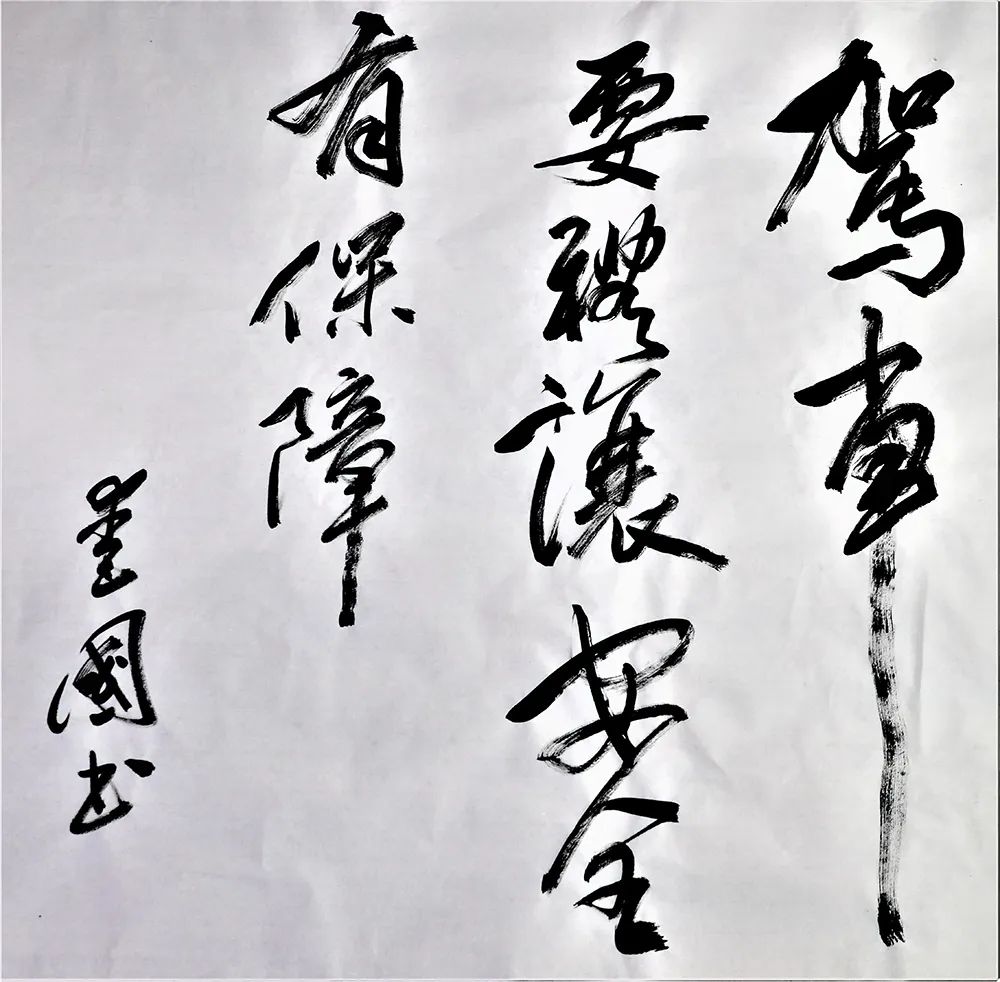 駕車
要禮讓安全
有保障
國书